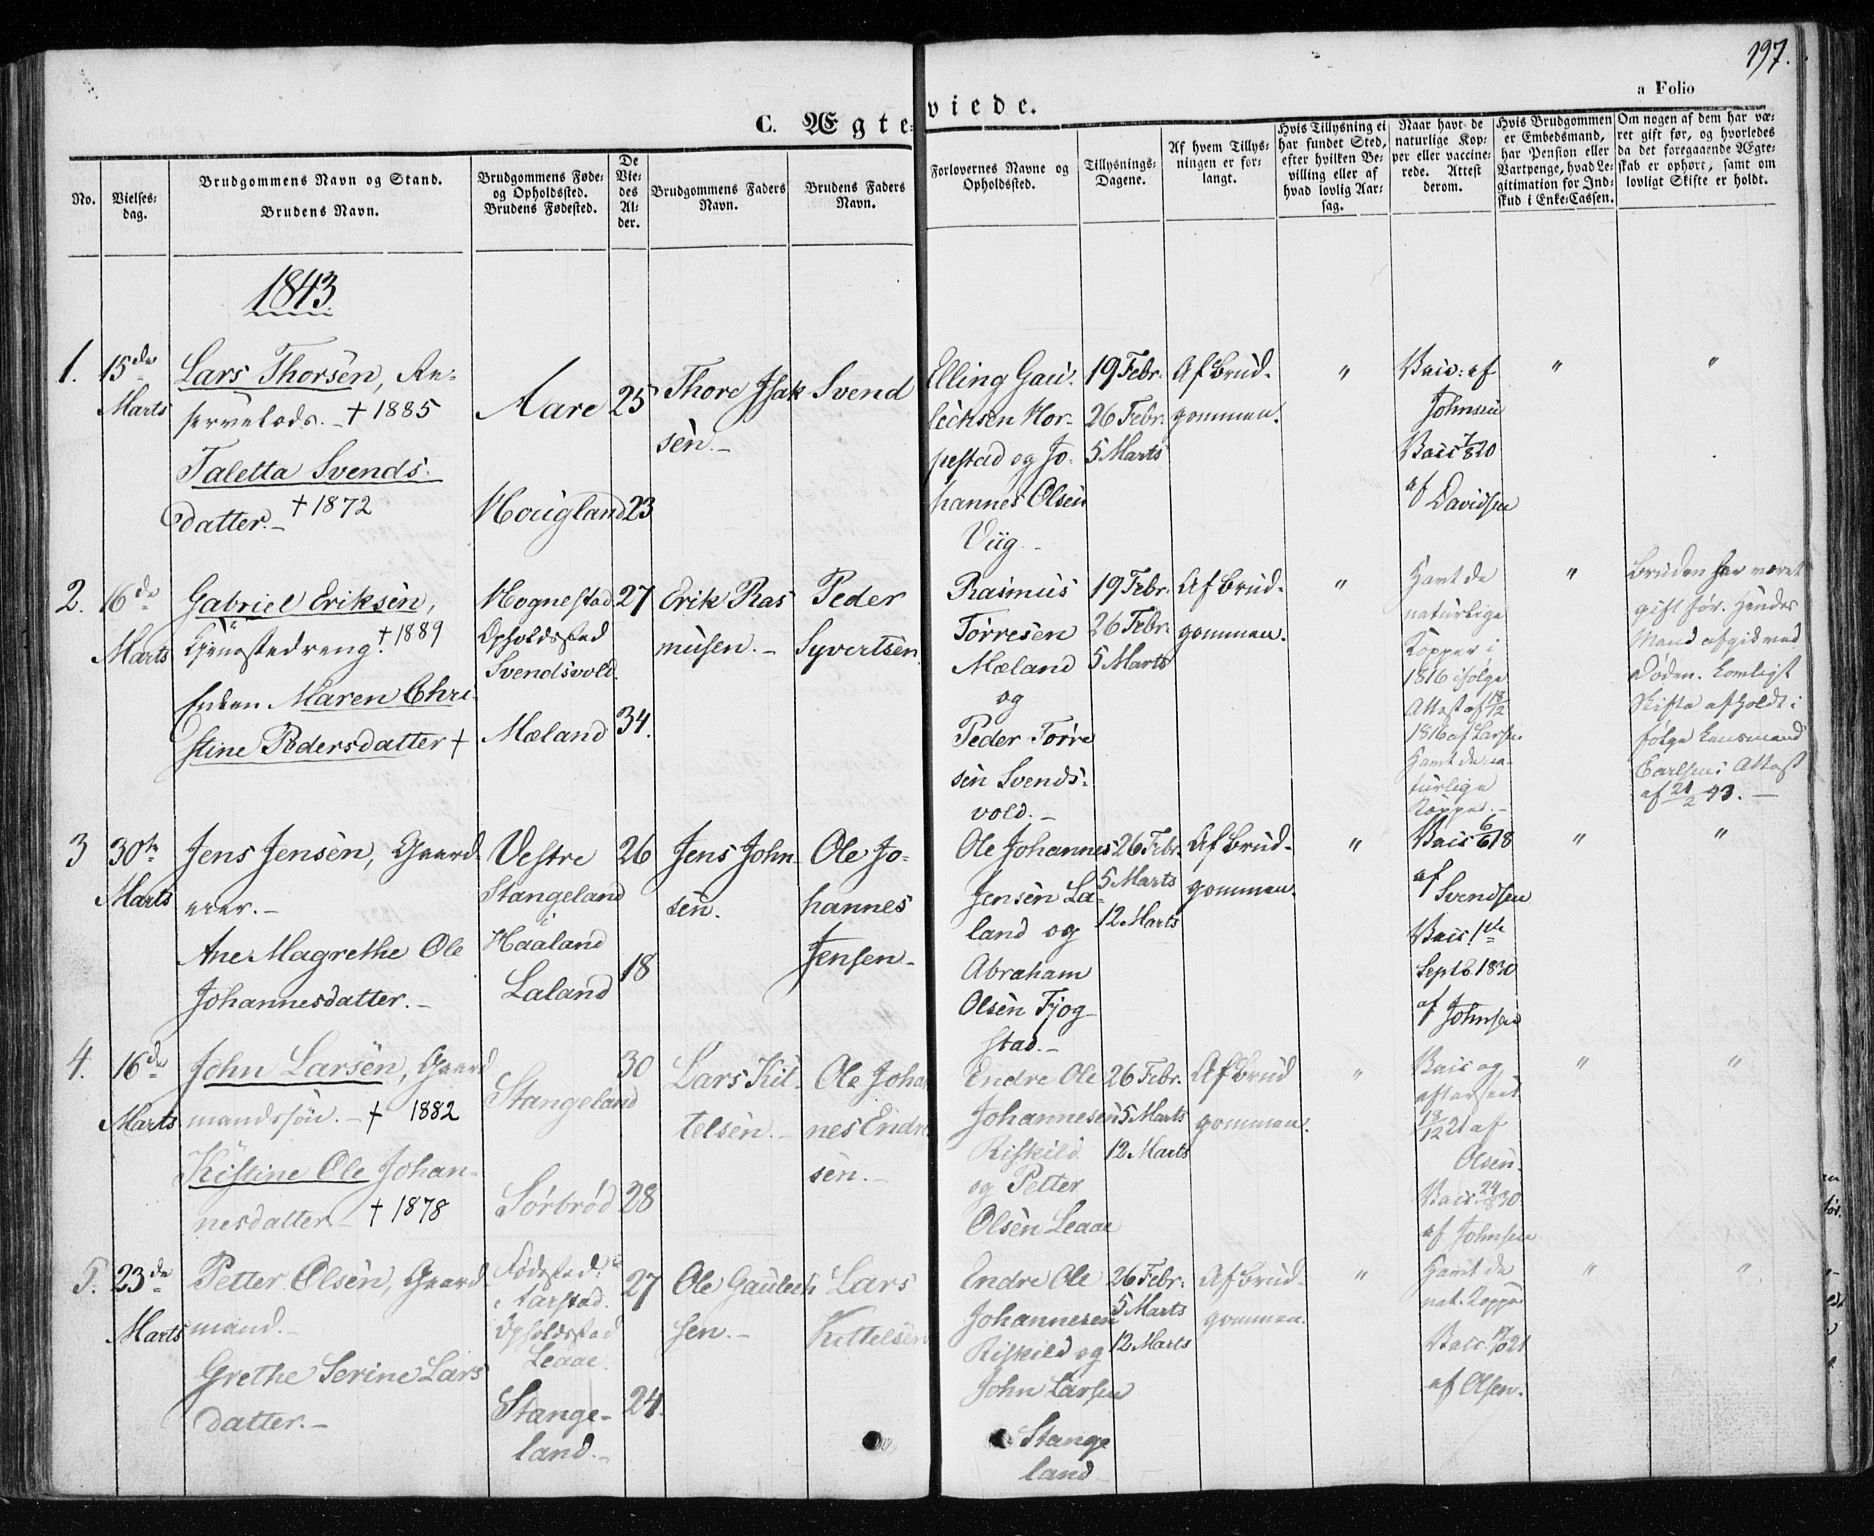 197.
a Folio
C. Ægteviede.
No.
Vielses-
dag.
Brudgommens Navn og Stand.
Brudens Navn.
Brudgommens Føde-
og Opholdssted.
Brudens Fødested.
De
Vie-
des
Al-
der.
Brudgommens Faders
Navn.
Brudens Faders
Navn.
Forlovernes Navne og
Opholdssted.
Tillysnings-
Dagene.
Af hvem Tillys-
ningen er for-
langt.
Hvis Tillysning ei
har fundet Sted,
efter hvilken Be-
villing eller af
hvad lovlig Aar-
sag.
Naar havt de
naturlige Kop-
per eller vaccine-
rede. Attest
derom.
Hvis Brudgommen
er Embedsmand,
har Pension eller
Vartpenge, hvad Le-
gitimation for Ind-
skud i Enke-Cassen.
Om nogen af dem har væ-
ret gift før, og hvorledes
da det foregaaende Ægte-
skab er ophørt, samt om
lovligt Skifte er holdt.
1843.
1.
15de
Marts
Lars Thorsen, Re-
servelods. - † 1885
Taletta Svends-
datter. - † 1872
Aare
Hougland
25
23
Thore Isak
sen. -
Svend
Elling Gau-
lichsen Hor-
pestad og Jo-
hannes Olsen
Viig. -
19 Febr.
26 Febr.
5 Marts
Af Brud-
gommen.
"
Vacc: af
Johnsen
Vacc 7/8 20
af Davidsen
"
"
2.
16de
Marts
Gabriel Eriksen,
Tjenestedreng. † 1889
Enken Maren Chri-
stine Pedersdatter †
Hognestad
Opholdssted
Svendsvold.
Mæland
27
34.
Erik Ras
musen. -
Peder
Syvertsen
Rasmus
Torresen
Mæland
og
Peder Torre
sen Svends-
vold. -
19 Febr.
26 Febr.
5 Marts
Af Brud-
gommen.
"
Havt de
naturlige
Kopper i
1816 ifølge
Attest af 18/12
1816 af Larsen
Havt de na-
turlige
Kopper. -
"
Bruden har været
gift før. Hendes
Mand afgik ved
Døden. Lovligt
Skifte afholdt i-
følge Lensmand
Carlsens Attest
af 21/2 43. -
3
30te
Marts
Jens Jensen, Gaard
eier. -
Ane Magrethe Ole
Johannesdatter. -
Vestre
Stangeland
i
Haaland
Laland
26
18
Jens John
sen.
Ole Jo-
hannes
Jensen -
Ole Johannes
Jensen La-
land og
Abraham
Olsen Fjog
stad. -
26 Febr.
5 Marts
12 Marts
Af Brud-
gommen.
"
Vacc 6/6 18
af
Svendsen
Vacc 1ste
Septb. 1830
af Johnsen
"
"
4.
16de
Marts
John Larsen, Gaard
mandssøn. - † 1882
Kistine Ole Johan-
nesdatter - † 1878
Stangeland
Sørbrød
30
28
Lars Kit-
telsen. -
Ole Johan
nes Endre
sen. -
Endre Ole
Johannesen
Riskild
og Petter
Olsen Leaae
26 Febr.
5 Marts
12 Marts
Af Brud
gommen.
"
Vacc og
efterseet
18/12 21 af
Olsen
Vacc 24/8 30
af Johnsen
"
"
5.
23de
Marts
Petter Olsen, Gaard
mand. -
Grethe Serine Lars
datter. -
Fødested:
Aarstad.
Opholdssted
Leaae.
Stange-
land. -
27
24.
Ole Gaulech
sen. -
Lars
Kittelsen
Endre Ole
Johannesen
Riskild og
John Larsen
Stange
land -
26 Febr.
5 Marts
12 Marts
Af Brud-
gommen.
"
Havt de
nat. Kopper
Vacc. 21
af Olsen.
"
"